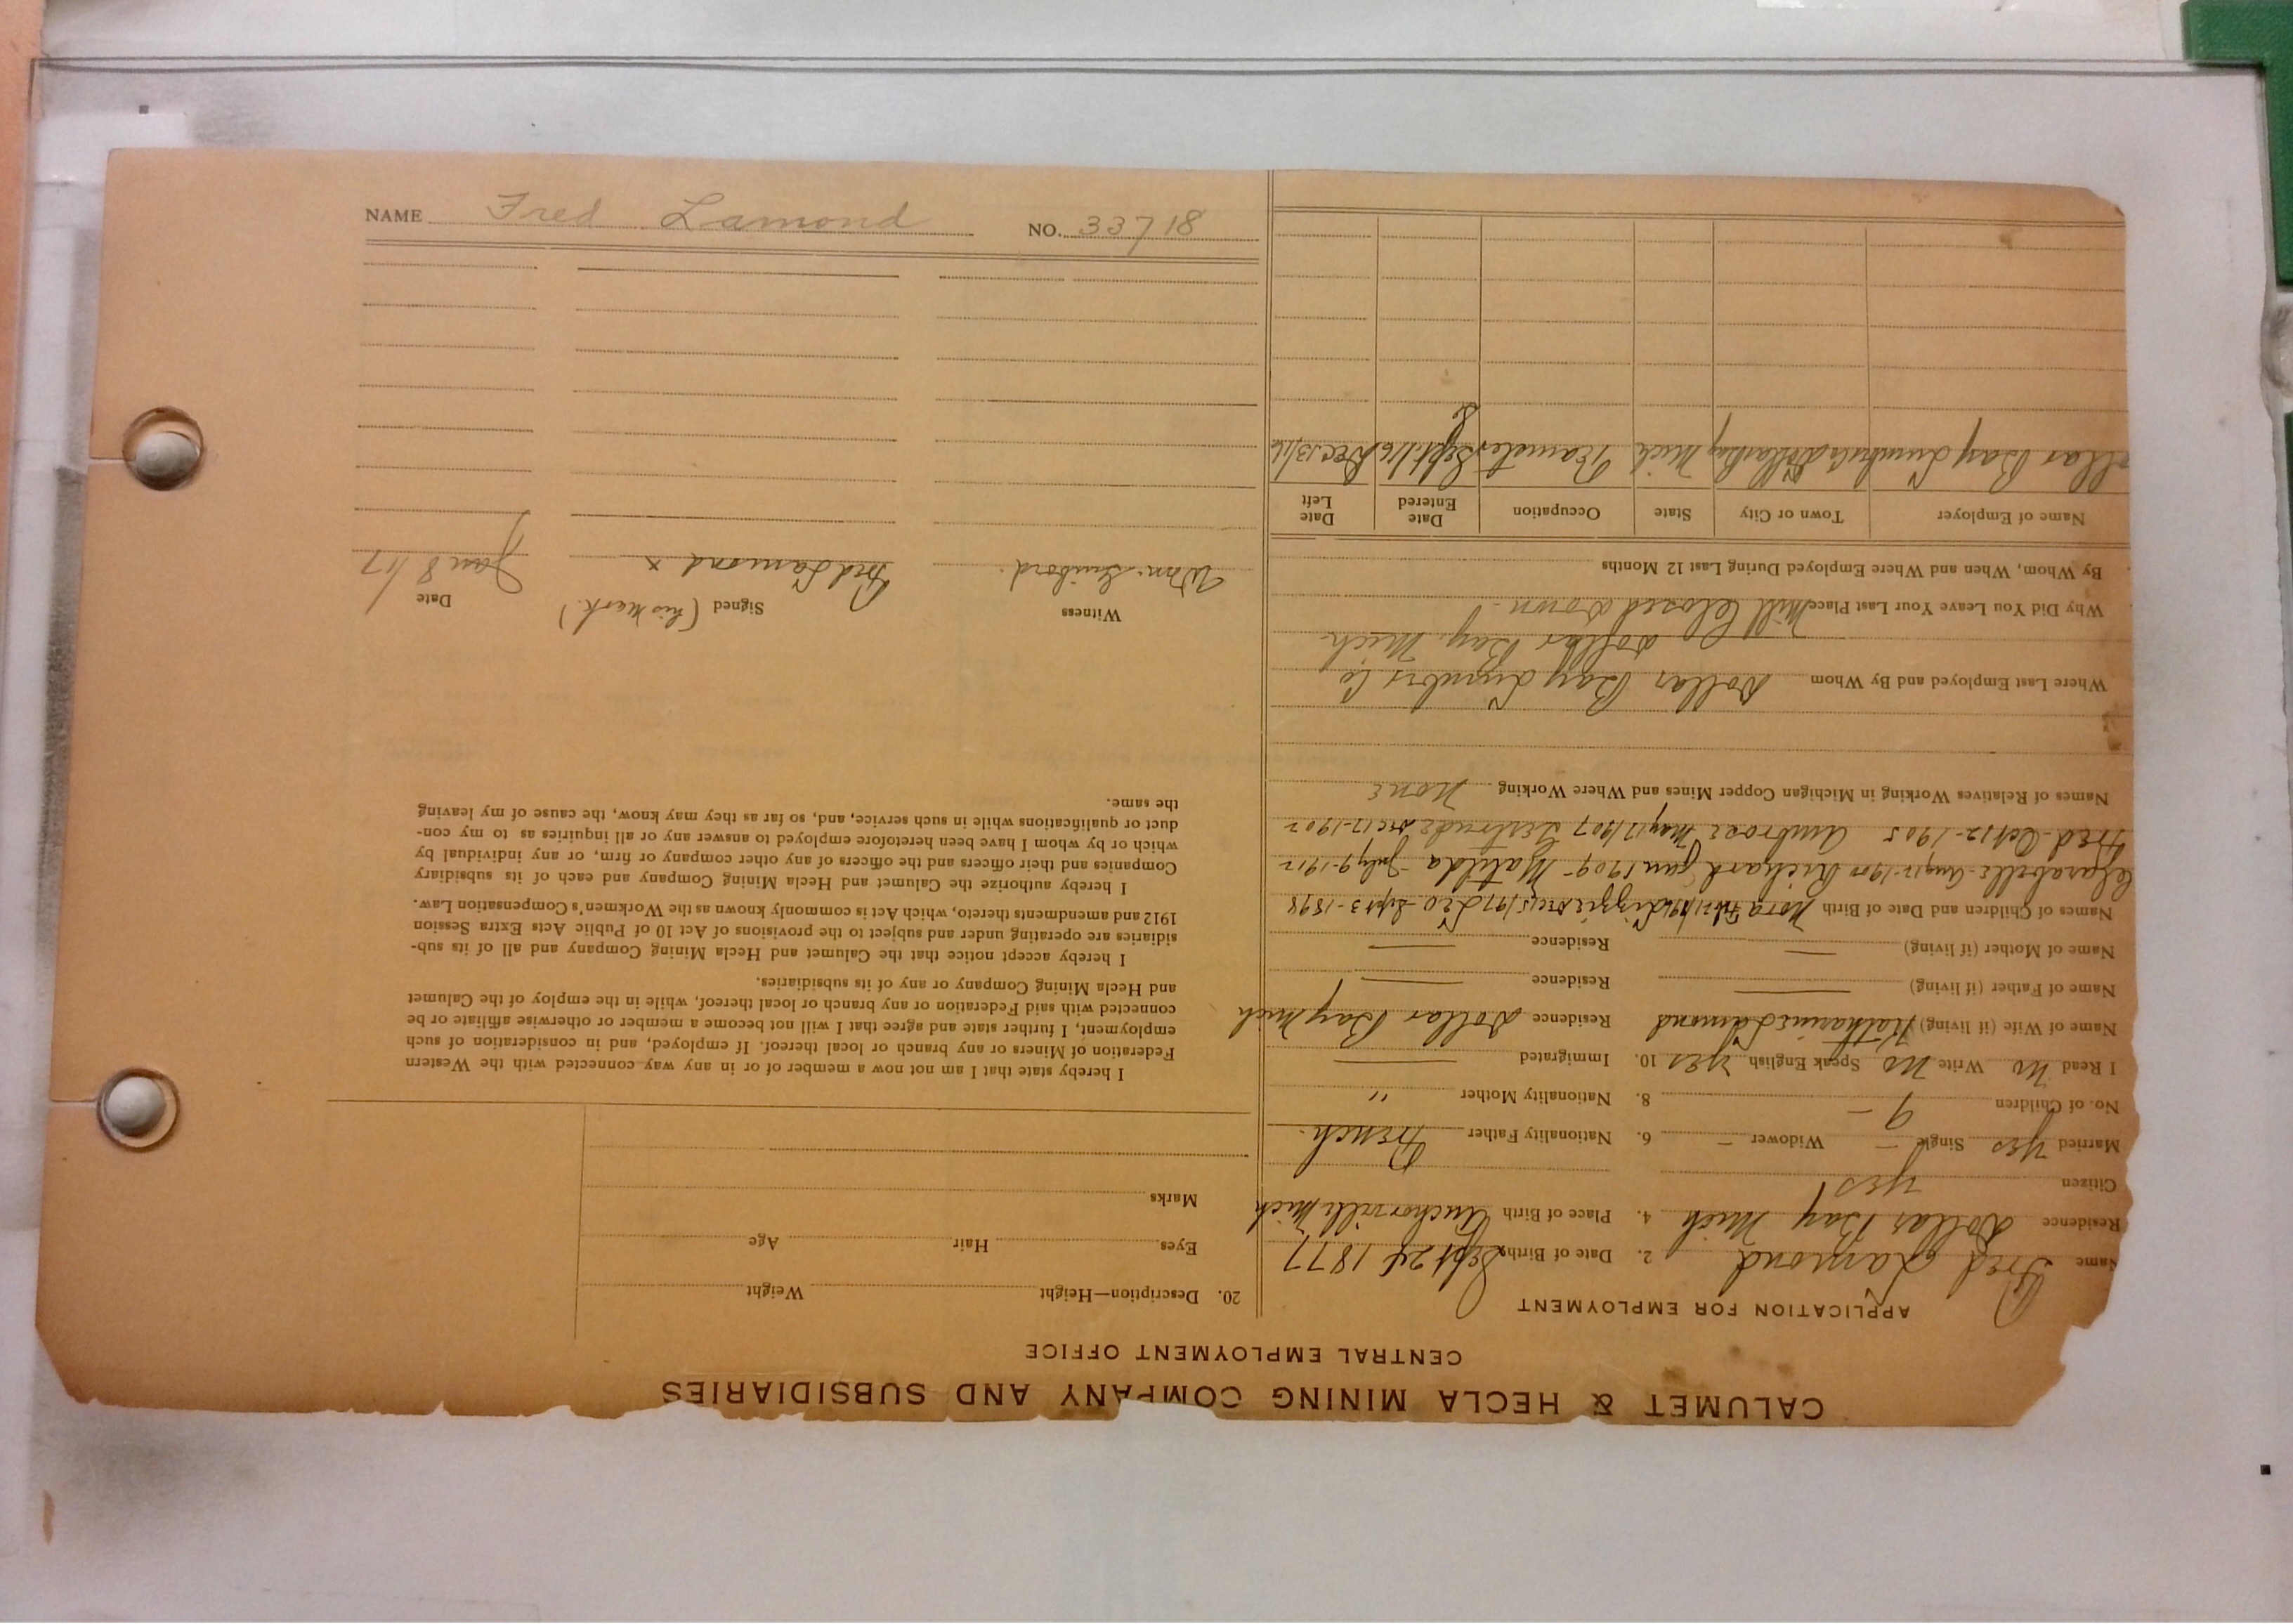 CALUMET & HECLA MINING COMPANY AND SUBSIDIARIES
CENTRAL EMPLOYMENT OFFICE
APPLICATION FOR EMPLOYMENT
Name Fred Lamond 2. Date of Birth Sept 24 1877
Residence Dollar Bay Mich 4. Place of Birth Anchorville Mich
Citizen yes
Married yes Single – Widower – 6. Nationality Father French.
No. of Children 9 – 8. Nationality Mother "
I Read no Write no Speak English yes 10. Immigrated
Name of Wife (if living) Katharine Lamond Residence Dollar Bay Mich
Name of Father (if living) Residence
Name of Mother (if living) Residence
Names of Children and Date of Birth Nora Lizzie Leo Sept 3-1898
Clarabelle Aug 12-1900 Richard Jan 1909 - Matilda - July 9-1912
Fred Oct 12-1905 Ambrose May 17 1907 Gertrude Dec 17-1902
Names of Relatives Working in Michigan Copper Mines and Where Working None
Where Last Employed and By Whom Dollar Bay Lumbers Co
Dollar Bay, Mich-
Why Did You Leave Your Last Place Mill Closed Down -
By Whom, When and Where Employed During Last 12 Months
Name of Employer Town or City State Occupation Date Entered Date Left
ollar Bay Lumbers Dollar Bay Mich Teamster Sept 1/16 Dec 13/16
20. Description—Height Weight
Eyes Hair Age
Marks
I hereby state that I am not now a member of or in any way connected with the Western
Federation of Miners or any branch or local thereof. If employed, and in consideration of such
employment, I further state and agree that I will not become a member or otherwise affiliate or be
connected with said Federation or any branch or local thereof, while in the employ of the Calumet
and Hecla Mining Company or any of its subsidiaries.
I hereby accept notice that the Calumet and Hecla Mining Company and all of its sub-
sidiaries are operating under and subject to the provisions of Act 10 of Public Acts Extra Session
1912 and amendments thereto, which Act is commonly known as the Workmen's Compensation Law.
I hereby authorize the Calumet and Hecla Mining Company and each of its subsidiary
Companies and their officers and the officers of any other company or firm, or any individual by
which or by whom I have been heretofore employed to answer any or all inquiries as to my con-
duct or qualifications while in such service, and, so far as they may know, the cause of my leaving
the same.
Witness Signed (his mark.) Date
Wm. Guibord. Fred Lamond x Jan 8/17
NAME Fred Lamond NO. 33718